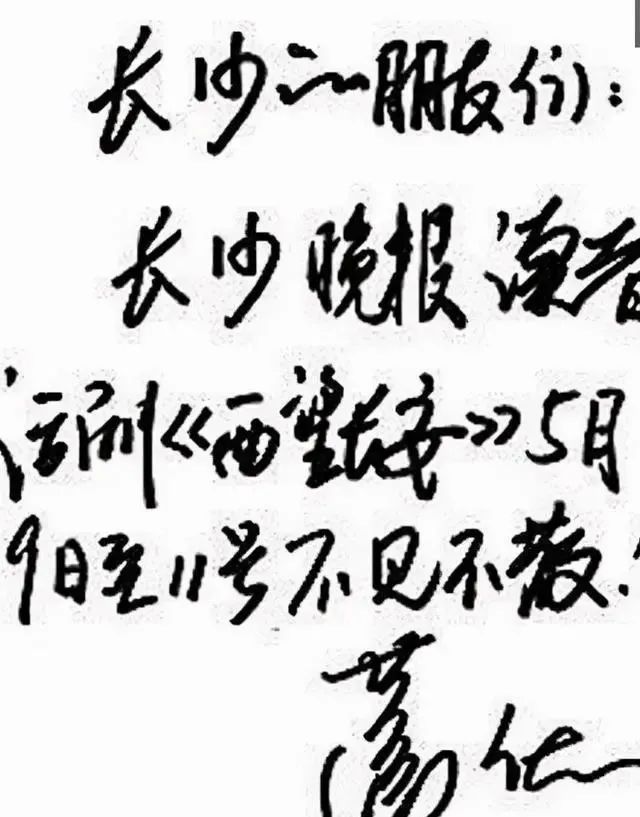 长沙的朋友们:
长沙晚报读者
话剧《西望长安》5月
9日至11号不见不散!
葛优